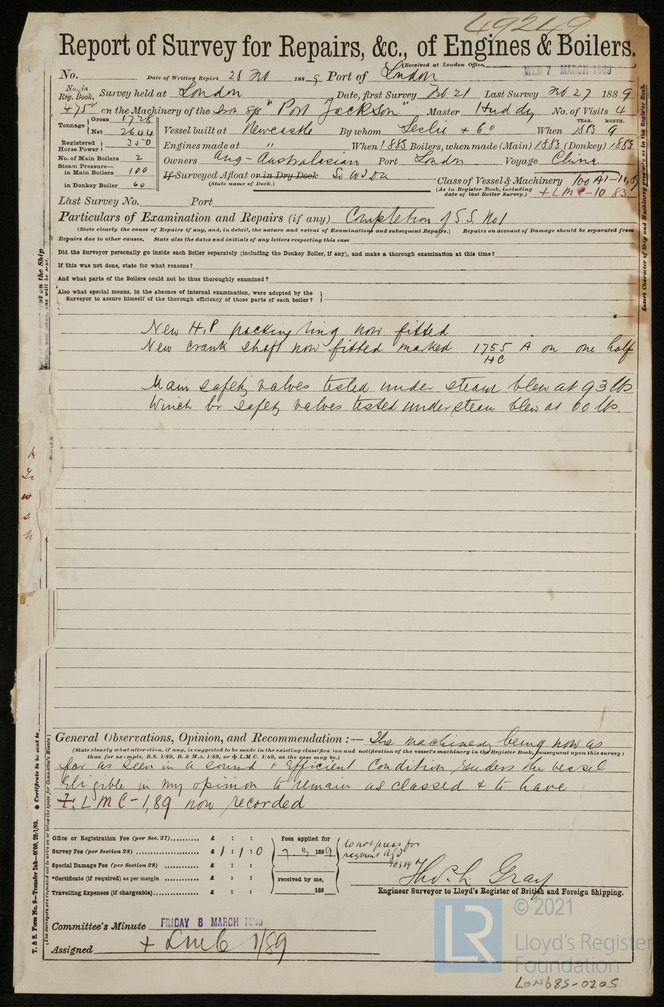 49249
Report of Survey for Repairs, &c., of Engines & Boilers.
(Received at London Office WED 7 MARCH 1889
No. Date of Writing Report 28 Feb 1889 Port of London
No. in Reg. Book. Survey held at London Date, first Survey Feb 21 Last Survey Feb 27 1889
475 on the Machinery of the Iron S/S "Port Jackson" Master Huddy No. of Visits 4
Tonnage Gross 1728
Net 2644
Vessel built at Newcastle By whom Leslie & Co When YEAR. 1883 MONTH. 9
Registered Horse Power 350
Engines made at " When 1883 Boilers, when made (Main) 1883 (Donkey) 1883
No. of Main Boilers 2
Owners Ang-Australasian Port London Voyage China
Steam Pressure— in Main Boilers 100
in Donkey Boiler 60
If Surveyed Afloat or in Dry Dock So W I Dk
(State name of Dock.)
Class of Vessel & Machinery 100 A1
(As in Register Book, including date of last Boiler Survey.) + LMC-10 83
Last Survey No. Port
Particulars of Examination and Repairs (if any) Completion of S.S. No 1
(State clearly the cause of Repairs if any, and, in detail, the nature and extent of Examinations and subsequent Repairs.) Repairs on account of Damage should be separated from
Repairs due to other causes. State also the dates and initials of any letters respecting this case
Did the Surveyor personally go inside each Boiler separately (including the Donkey Boiler, if any), and make a thorough examination at this time?
If this was not done, state for what reasons?
And what parts of the Boilers could not be thus thoroughly examined?
Also what special means, in the absence of internal examination, were adopted by the
Surveyor to assure himself of the thorough efficiency of those parts of each boiler?
New H.P. packing ring now fitted
New crank shaft now fitted marked 1755 A on one half
HC
Main safety valves tested under steam blew at 93 lbs
Winch br safety valves tested under steam blew at 60 lbs.
General Observations, Opinion, and Recommendation:— The machinery being now as
(State clearly what alteration, if any, is suggested to be made in the existing classification and notification of the vessel's machinery in the Register Book, consequent upon this survey;
thus, for example, B.S. 1/89, B. & M.s. 1/89, or + L.M.C. 1/89, as the case may be.)
far as seen in a sound & efficient condition renders the vessel
eligible in my opinion to remain as classed & to have
+ L M C-1,89 now recorded
Office or Registration Fee (per Sec. 27) £ : :
Survey Fee (per Section 28) £ 1 : 1 : 0
Special Damage Fee (per Section 28) £ : :
*Certificate (if required) as per margin £ : :
Travelling Expenses (if chargeable) £ : :
Fees applied for
1889
received by me,
188
Do not press for
payment
Thos. L. Gray
Engineer Surveyor to Lloyd's Register of British and Foreign Shipping.
Committee's Minute FRIDAY 8 MARCH 1889
Assigned + LMC 1/89
T. & S. Form No. 9—Transfer Ink—8000, 28/1/89.
LR
© 2021
Lloyd's Register
Foundation
LON685-0205